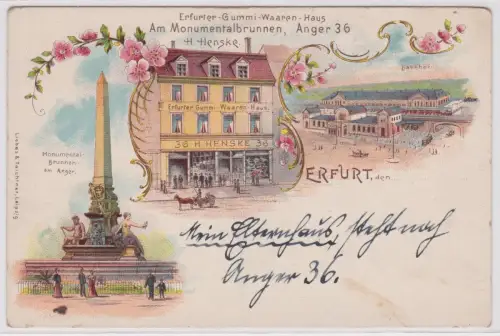 Erfurter-Gummi-Waaren-Haus
Am Monumentalbrunnen, Anger 36
H. Henske
Bahnhof.
Erfurter Gummi-Waaren-Haus.
36 H. HENSKE 36
Monumental
Brunnen
am Anger.
ERFURT, den
Mein Elternhaus, steht noch
Anger 36.